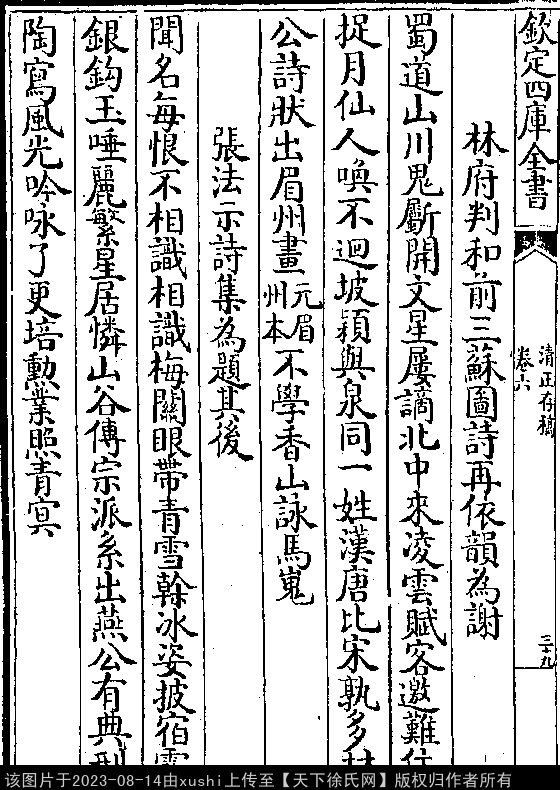 欽定四庫全書
清正存稿
卷六
三十九
林府判和前三蘇圖詩再依韻為謝
蜀道山川鬼斸開文星屢謫北中來凌雲賦客邀難
捉月仙人喚不迴坡潁與泉同一姓漢唐比宋孰多
公詩狀出眉州畫元眉州本不學香山詠馬嵬
張法示詩集為題其後
聞名每恨不相識相識梅關眼帶青雪幹冰姿披宿
銀鈎玉唾麗繁星居憐山谷傳宗派系出燕公有典
陶寫風光吟咏了更培勲業照青冥
该图片于2023-08-14由xushi上传至【天下徐氏网】版权归作者所有